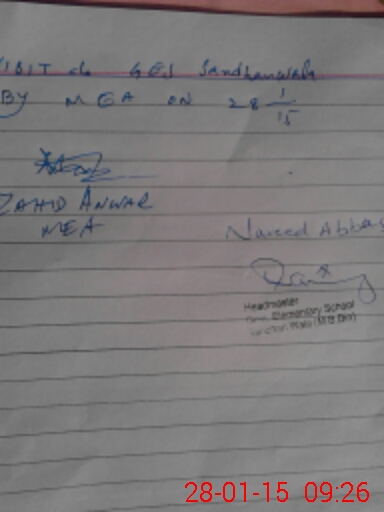 VISIT of GES Sandhanwala
BY MEA ON 28/1/15
ZAHID ANWAR
MEA
Naveed Abbas
Headmaster
Elementary School
28-01-15 09:26